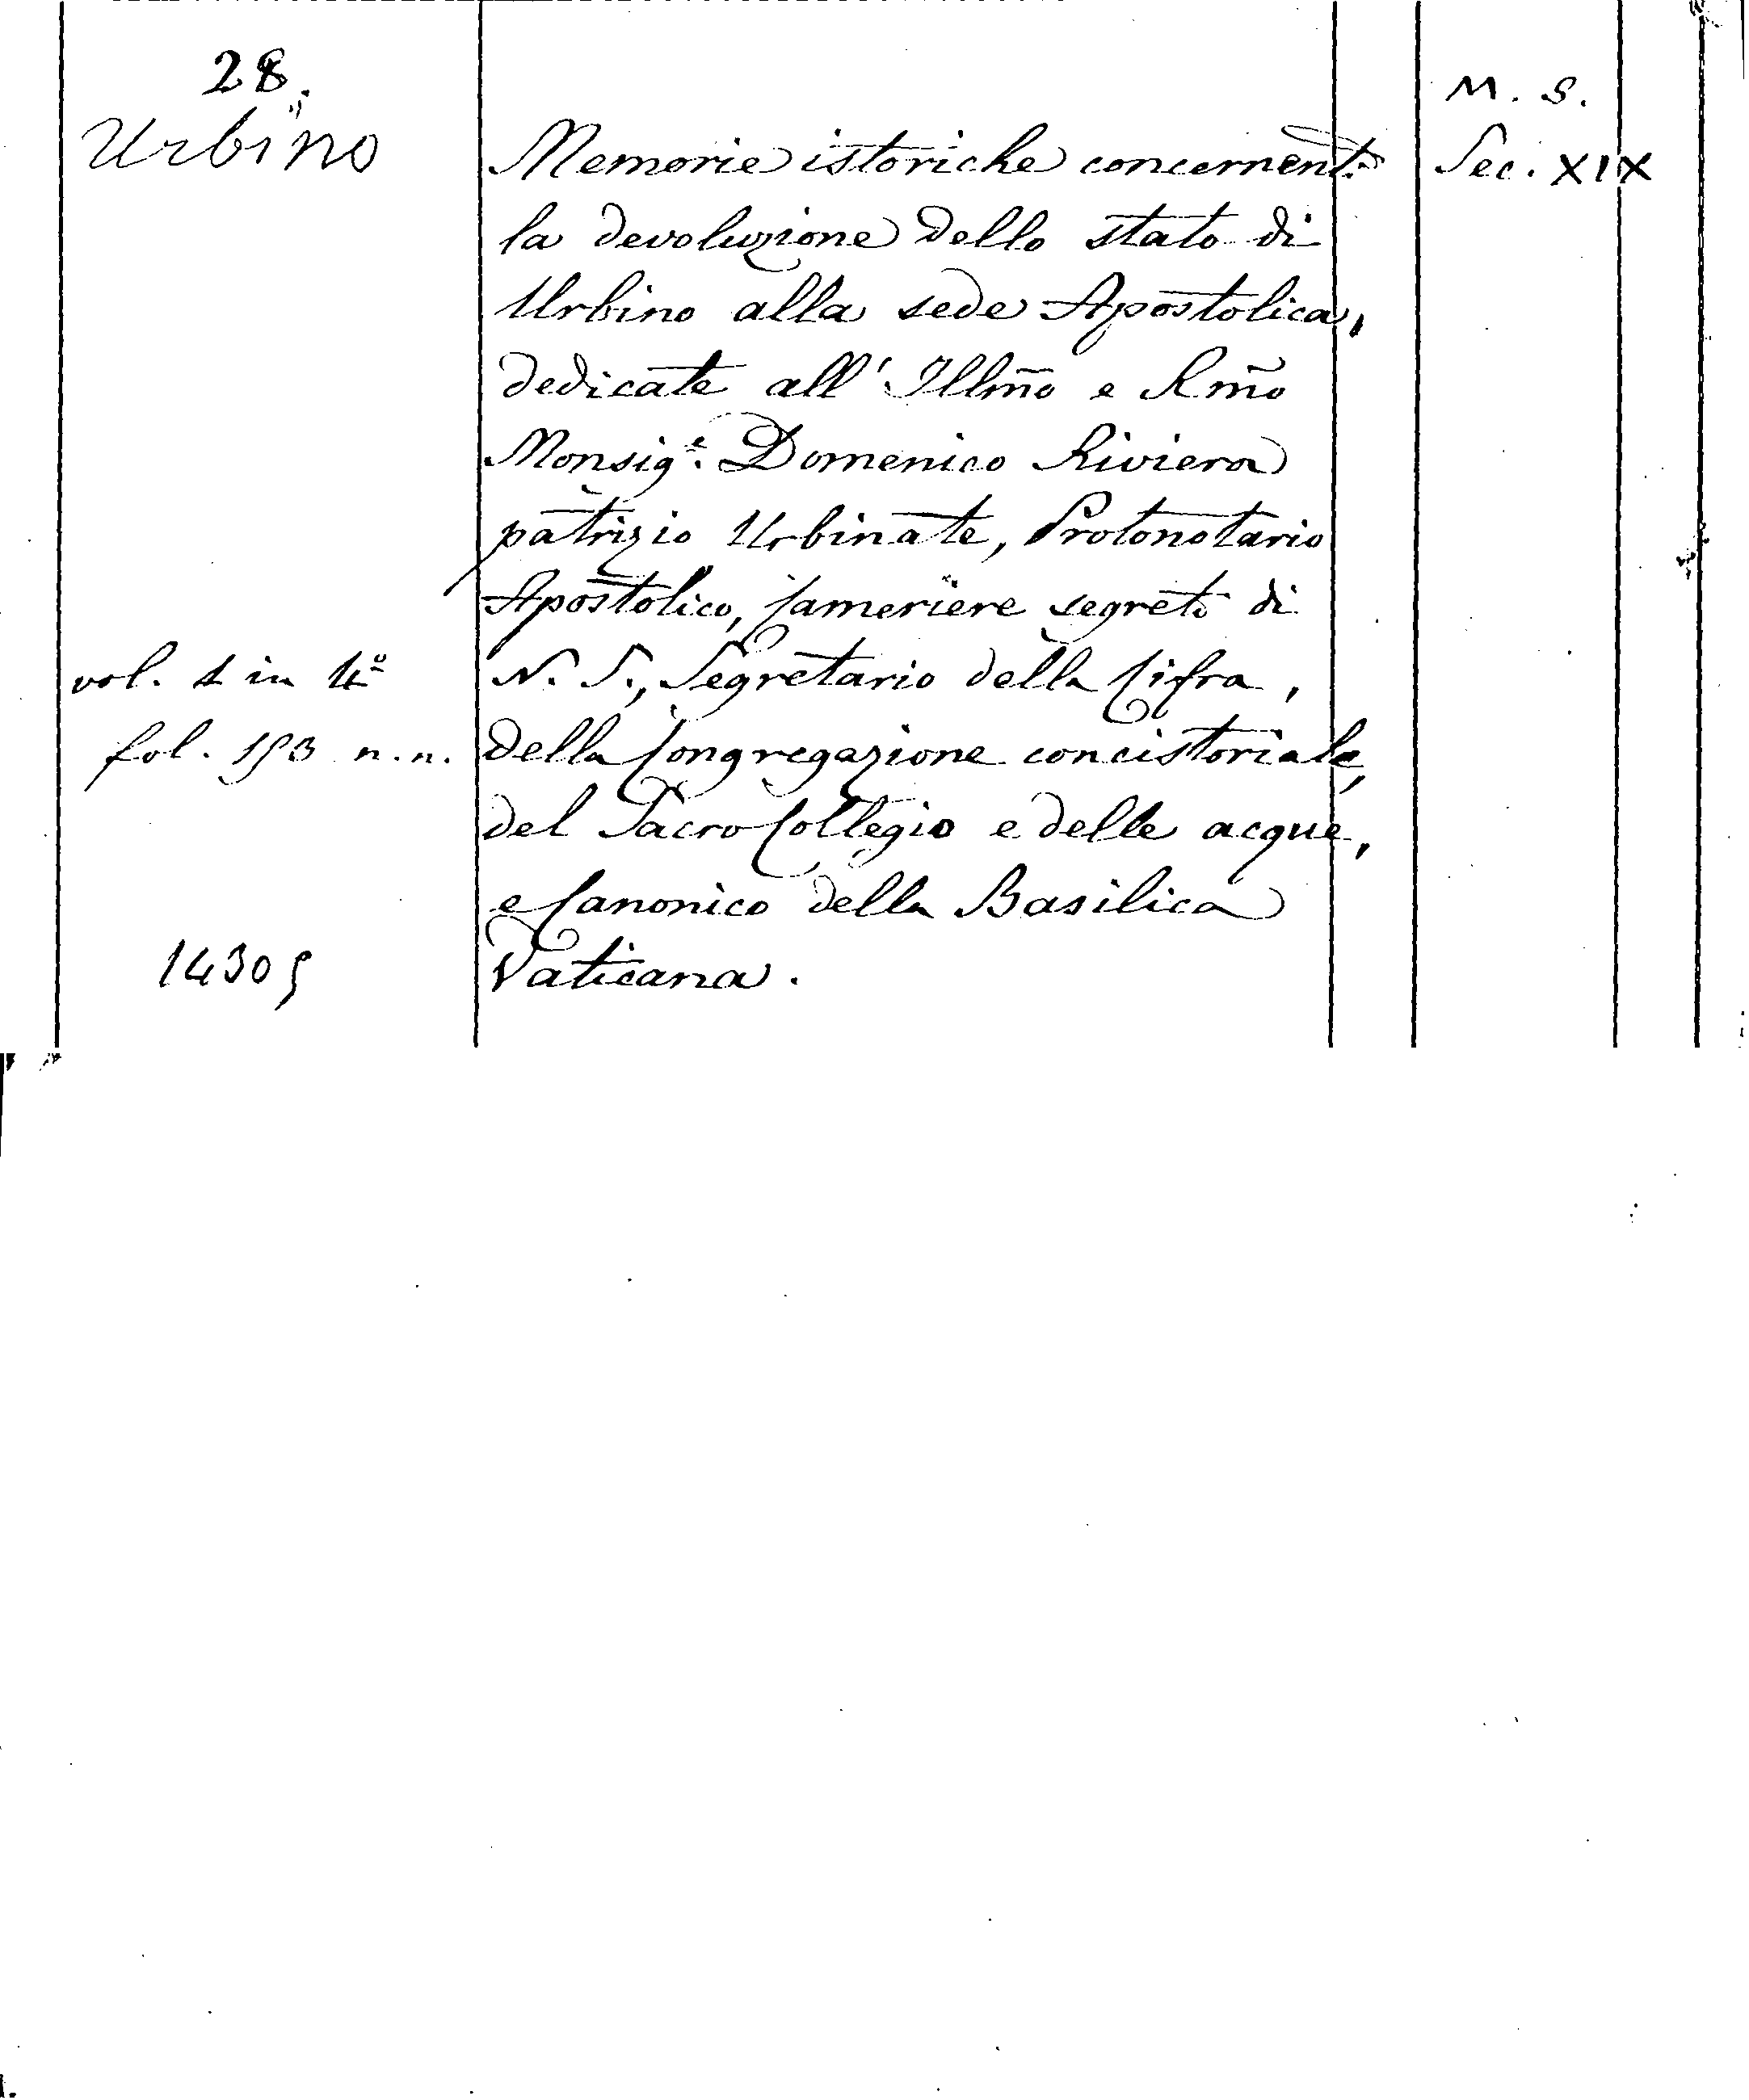 28.
Urbino
vol. 1 in 4º
fol. 153 n.n.
14305
Memorie istoriche concernenti
la devoluzione dello stato di
Urbino alla sede Apostolica,
dedicate all'Illmo e Rmo
Monsig.e Domenico Riviera
patrizio Urbinate, Protonotario
Apostolico, Cameriere segreto di
N. S., Segretario della Cifra,
della Congregazione concistoriale,
del Sacro Collegio e delle acque,
e Canonico della Basilica
Vaticana.
M. S.
Sec. XIX